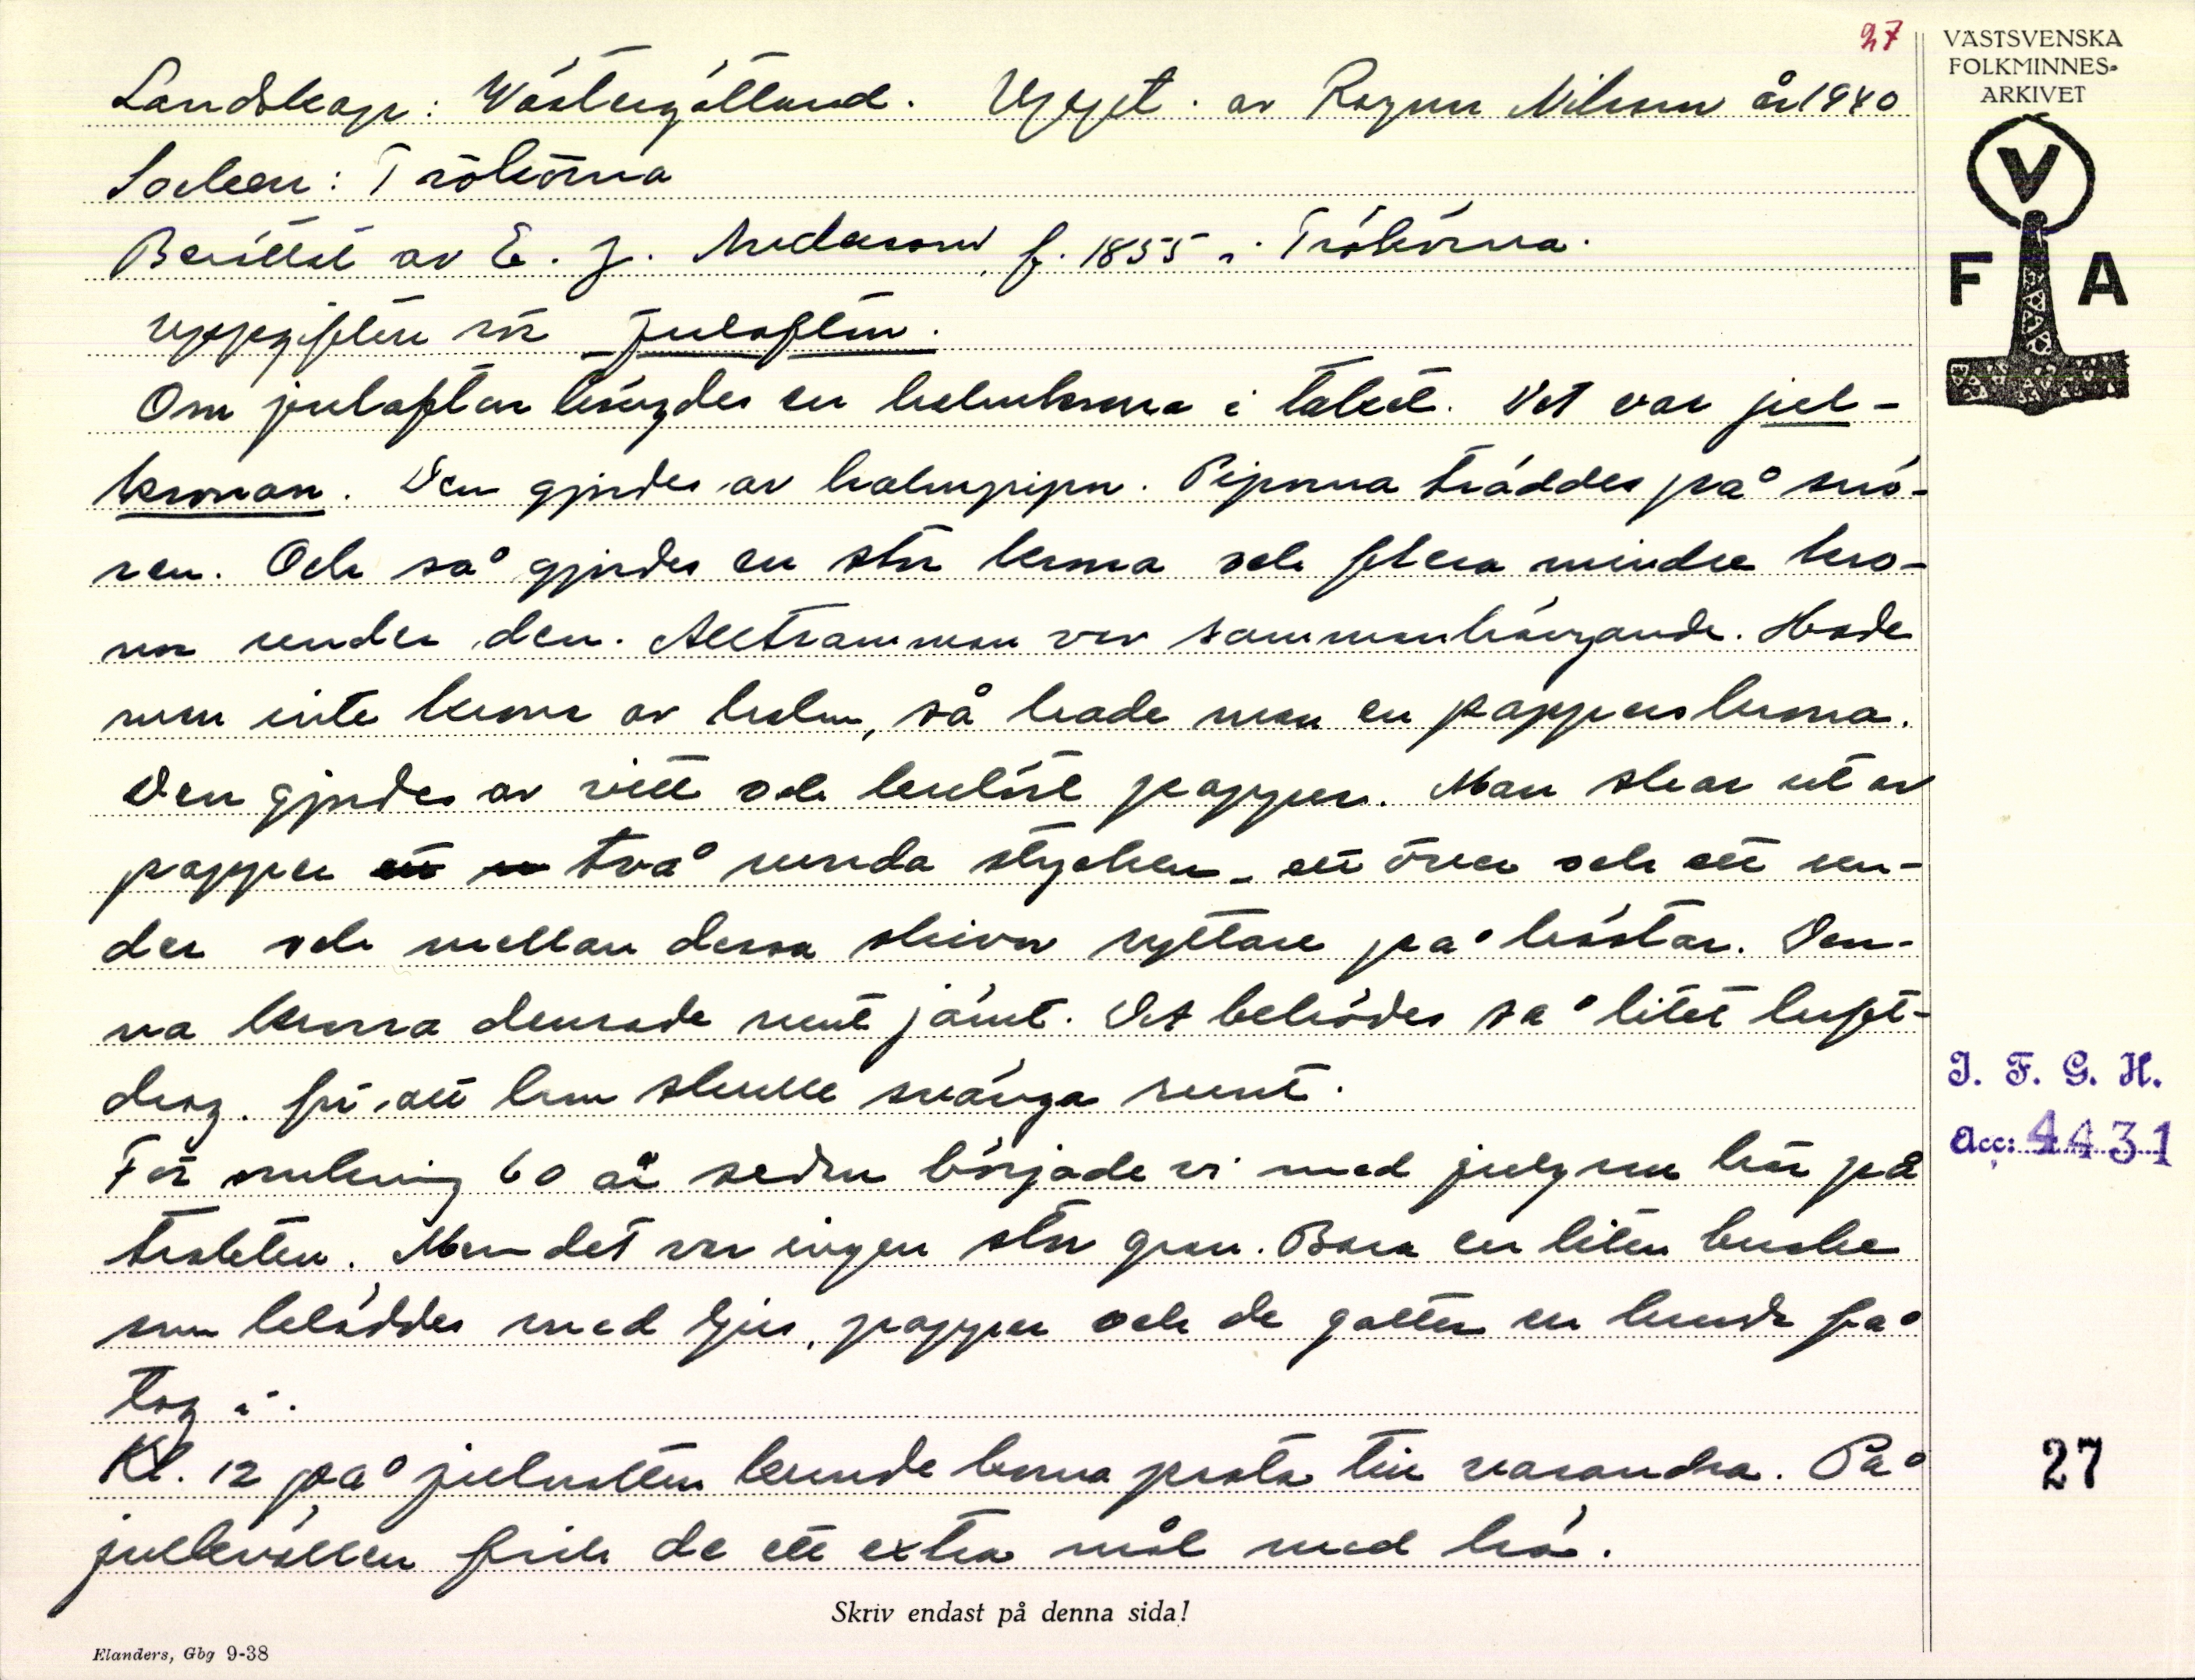 27
VÄSTSVENSKA
FOLKMINNES-
ARKIVET
V
F A
Landskap: Västergötland. Uppt. av Ragnar Nilsson år 1940
Socken: Trökörna
Berättat av E. J. Andersson, f. 1855 i Trökörna.
Uppgiften rör Julafton.
Om julafton hängdes en halmkrona i taket. Det var jul-
kronan. Den gjordes av halmpipor. Piporna träddes på snö-
ren. Och så gjordes en stor krona och flera mindre kro-
nor under den. Alltsamman var sammanhängande. Hade
man inte krona av halm, så hade man en papperskrona.
Den gjordes av vitt och kulört papper. Man skar ut av
papper ett två runda stycken – ett över och ett un-
der och mellan dessa skivor ryttare på hästar. Den-
na krona dansade runt jämt. Det behövdes så litet luft-
drag. för att hon skulle svänga runt.
För omkring 60 år sedan började vi med julgran här på
trakten. Men det var ingen stor gran. Bara en liten buske
som bekläddes med ljus, papper och de gotter en kunde få
tag i.
Kl. 12 på julnatten kunde korna prata till varandra. På
julkvällen fick de ett extra mål med hö.
I. F. G. H.
Acc: 4431
27
Skriv endast på denna sida!
Elanders, Gbg 9-38